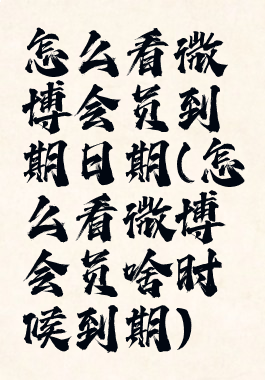 怎么看微
博会员到
期日期(怎
么看微博
会员啥时
候到期)